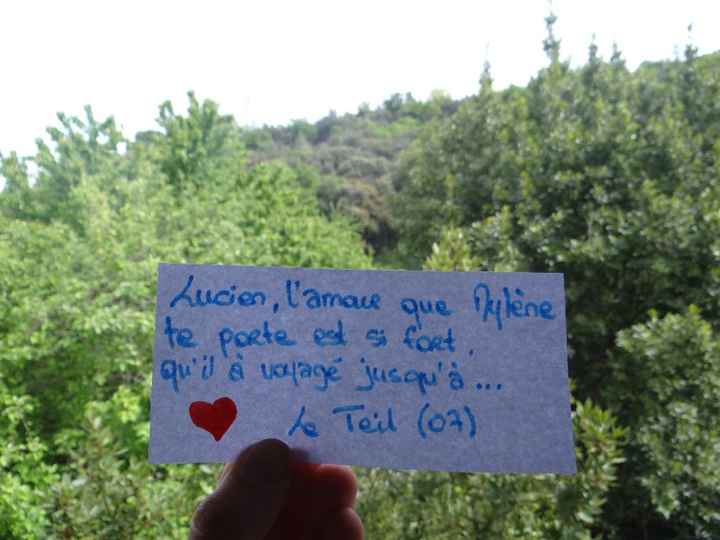 Lucien, l'amour que Mylène
te porte est si fort,
qu'il à voyagé jusqu'à...
Le Teil (07)